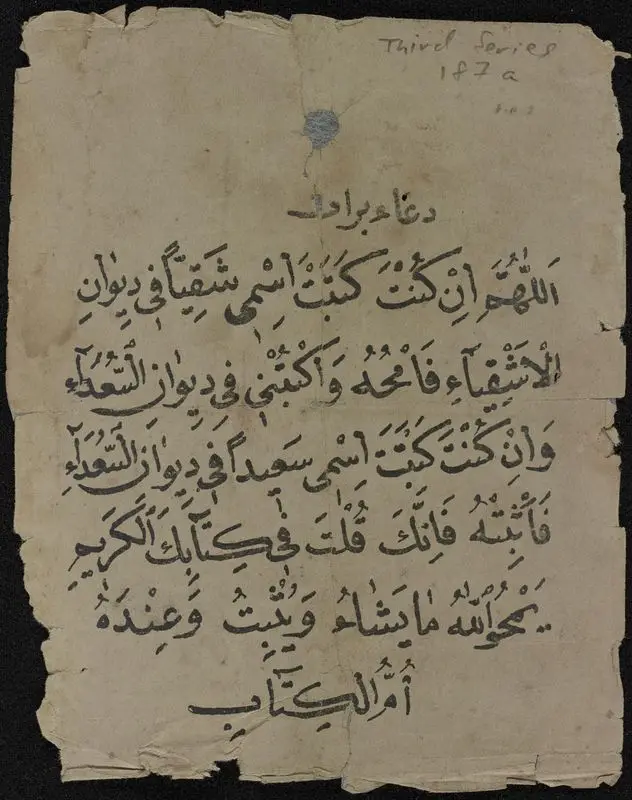 Third Series
187a
دعاء برادر
اَللّٰهُمَّ اِنْ كُنْتَ كَتَبْتَ اِسْمِي شَقِيّاً فِي دِيوٰانِ
الْاَشْقِيَآءِ فَامْحُهُ وَاَكْتُبْنِي فِي دِيوٰانِ السُّعَدَآءِ
وَاِنْ كُنْتَ كَتَبْتَ اِسْمِي سَعِيداً فِي دِيوٰانِ السُّعَدَآءِ
فَاَثْبِتْهُ فَاِنَّكَ قُلْتَ فِي كِتٰابِكَ الْكَرِيمِ
يَمْحُو اللّٰهُ مٰا يَشٰاءُ وَيُثْبِتُ وَعِنْدَهُ
اُمُّ الْكِتٰابِ